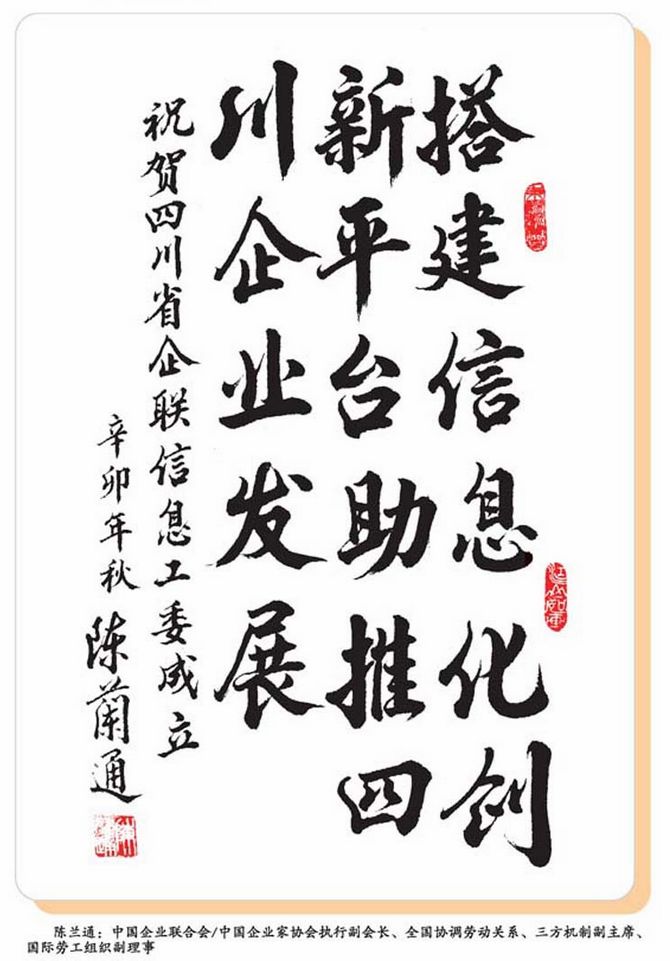 搭建信息化创
新平台助推四
川企业发展
祝贺四川省企联信息工委成立
辛卯年秋
陈蘭通
陈兰通：中国企业联合会/中国企业家协会执行副会长、全国协调劳动关系、三方机制副主席、
国际劳工组织副理事